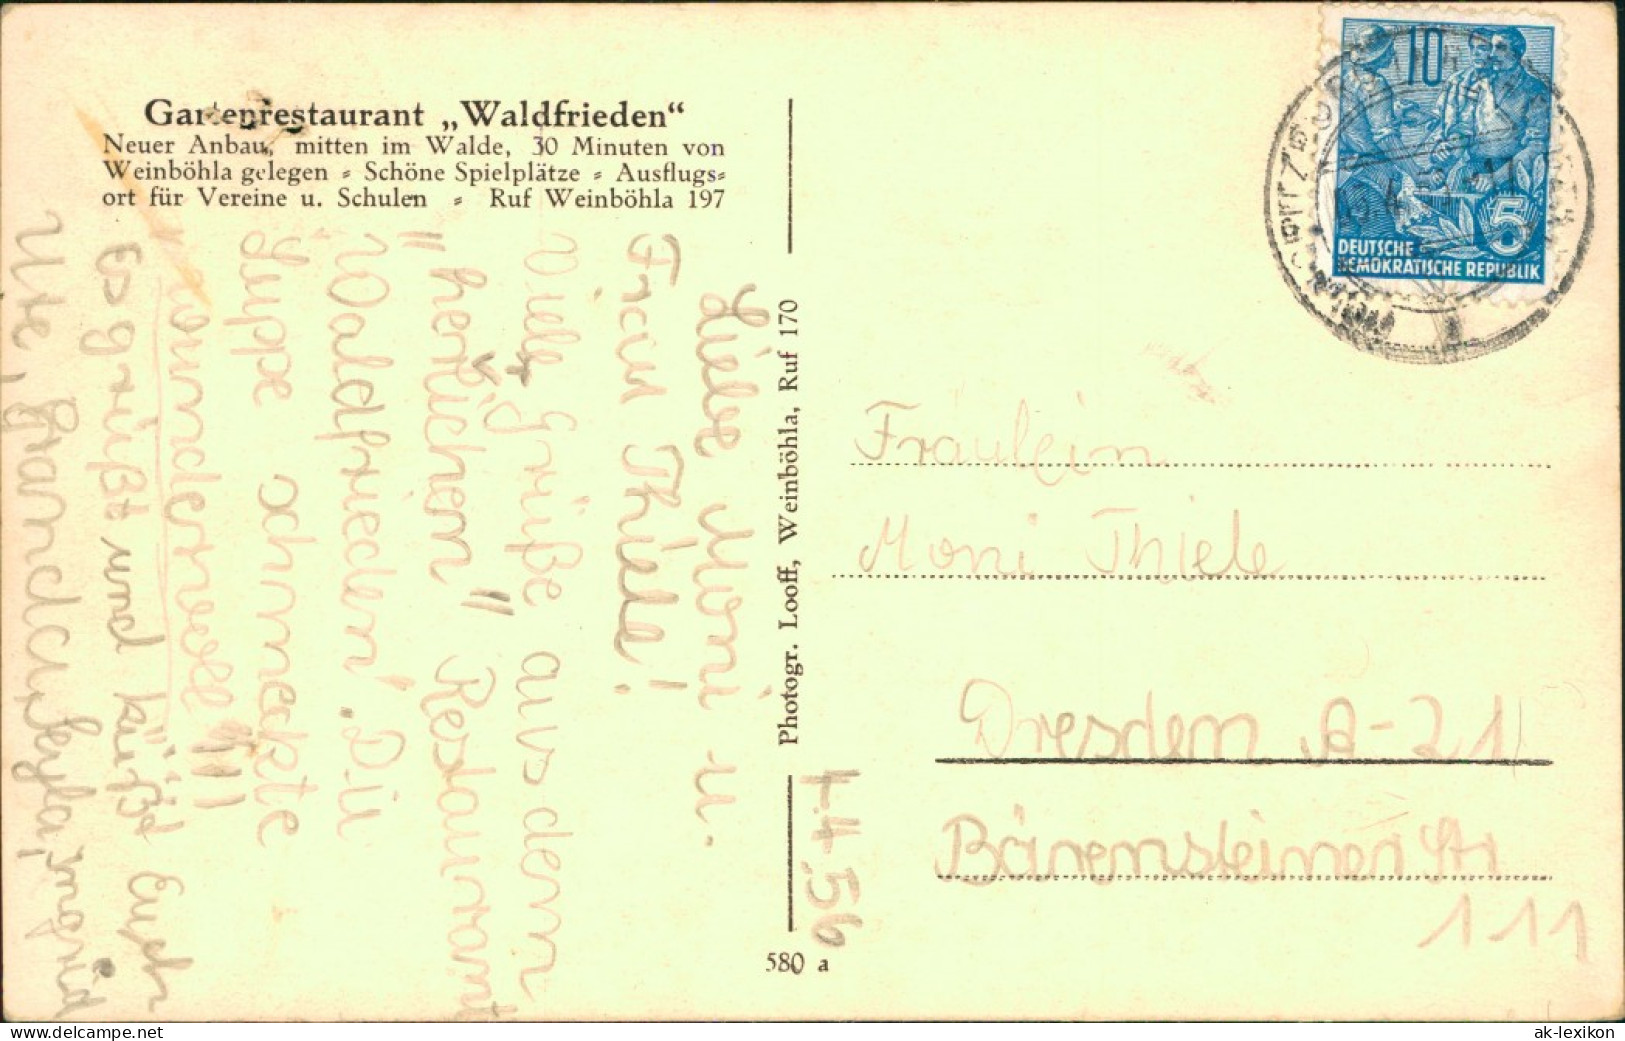 Gartenrestaurant „Waldfrieden“
Neuer Anbau, mitten im Walde, 30 Minuten von
Weinböhla gelegen - Schöne Spielplätze - Ausflugs-
ort für Vereine u. Schulen - Ruf Weinböhla 197
Liebe Moni u.
Frau Thiele!
Viele Grüße aus dem
"herrlichen" Restaurant
"Waldfrieden". Die
Suppe schmeckte
wundervoll!!!
Es grüßt und küßt Euch
Ute, 
Photogr. Looff, Weinböhla, Ruf 170
4.4.56
580 a
10
5
DEUTSCHE
DEMOKRATISCHE REPUBLIK
Fräulein
Moni Thiele
Dresden A-21
Bärensteiner Str
111
delcampe.net
ak-lexikon